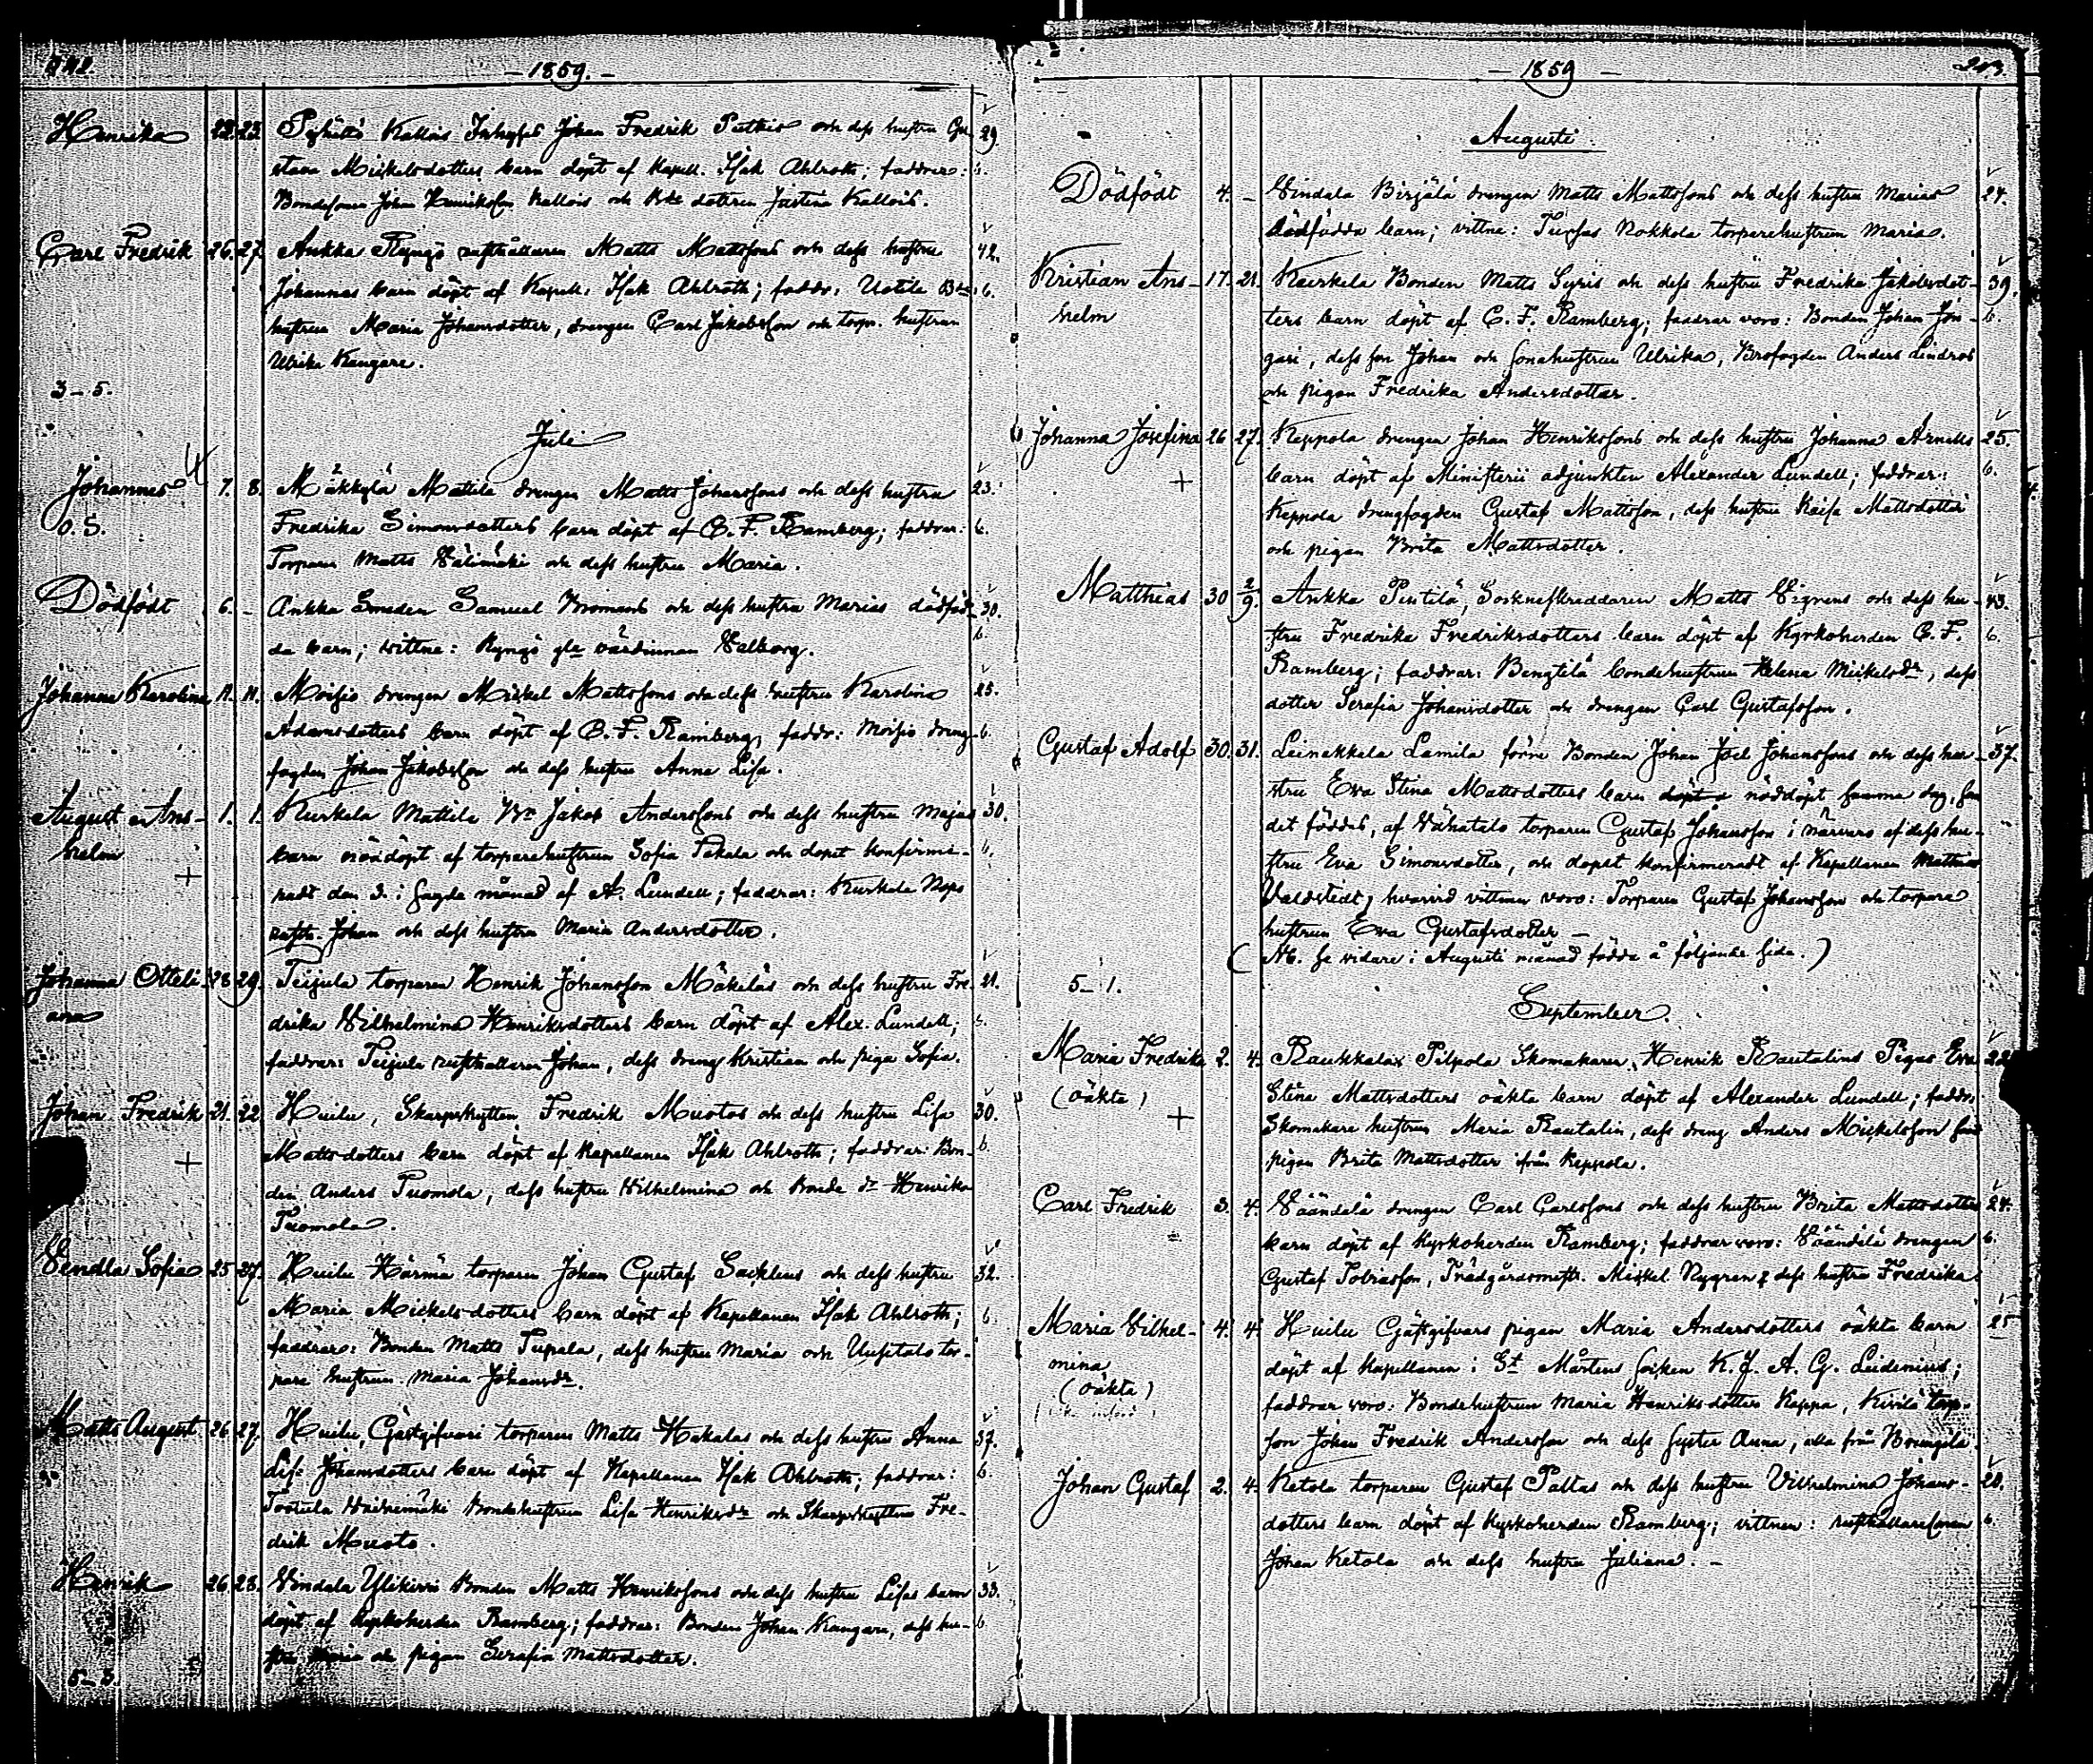 242.
— 1859. —
Henrika 22. 23. Pyhältö Kallois Inhyses Johan Fredrik och dess hustru Gu- 29.
stava Mickelsdotters barn döpt af Kapell. Isak Ahlroth; faddrar:
Bondesonen Johan Henriksson Kallois och Bde dottren Justina Kallois.
Carl Fredrik 26. 27. Ankka Ryngö rusthållaren Matts Mattssons och dess hustru 42.
Johannas barn döpt af Kapell. Isak Ahlroth; faddr: Uotila Bde b.
hustrun Maria Johansdotter, drengen Carl Jakobsson och torp. hustrun
Ulrika Kangare.
3–5.
Juli
Johannes 7. 8. Mäkkylä Mattila drengen Matts Johanssons och dess hustru 23.
O.S. Fredrika Simonsdotters barn döpt af C. F. Ramberg; faddrar: b.
Torparen Matts Välimäki och dess hustru Maria.
Dödfödt 6. – Ankka Smeden Samuel Kromans och dess hustru Marias dödföd- 30.
da barn; wittne: Ryngö gla värdinnan Valborg. b.
Johanna Karolina 11. 11. Moisio drengen Mickel Mattssons och dess hustru Karolina 25.
Adamsdotters barn döpt af C. F. Ramberg, faddr: Moisio dreng- b.
fogden Johan Jakobsson och dess hustru Anna Lisa.
August Ans- 1. 1. Kurkela Mattila Bn Jakob Anderssons och dess hustru Majas 30.
helm barn nöddöpt af torparehustrun Sofia Takala och dopet konfirme- b.
+ radt den 3. i sagde månad af A. Lundell; faddrar: Kurkela Nops
rusth. Johan och dess hustru Maria Andersdotter.
Johanna Otteli- 28. 29. Teijula torparen Henrik Johansson Mäkeläs och dess hustru Fre- 21.
ana drika Wilhelmina Henriksdotters barn döpt af Alex. Lundell;
faddrar: Teijula rusthållaren Johan, dess dreng Kristian och piga Sofia.
Johan Fredrik 21. 22 Huilu, Skarpskytten Fredrik Muotos och dess hustru Lisa 30.
+ Mattsdotters barn döpt af Kapellanen Isak Ahlroth; faddrar: Bon- b
den Anders Tuomola, dess hustru Wilhelmina och Bonde dr Henrika
Tuomola.
Vendla Sofia 25 27. Huilu Härmä torparen Johan Gustaf Sacklens och dess hustru 32.
Maria Mickelsdotters barn döpt af Kapellanen Isak Ahlroth; b
faddrar: Bonden Matts Tupala, dess hustru Maria och Uusitalo tor-
pare hustrun Maria Johansdr.
Matts August 26. 27. Huilu, Gästgifvari torparen Matts Hakalas och dess hustru Anna 37.
Lisa Johansdotters barn döpt af Kapellanen Isak Ahlroth; faddrar: b
Bondehustrun Lisa Henriksdr och Skarpskytten Fre-
drik Muoto.
Henrik 26. 28. Vindala Ylikirri Bonden Matts Henrikssons och dess hustru Lisas barn 33.
döpt af Kyrkoherden Ramberg; faddrar: Bonden Johan Kangare, dess hu- b
stru Maria och pigan Serafia Mattsdotter.
5–3.
— 1859 —
243.
Augusti
Dödfödt 4. – Vindala Birjälä drengen Matts Mattssons och dess hustru Marias 24.
dödfödda barn; vittne: Nokkola torparehustrun Maria.
Kristian Ans- 17. 21. Kurkela Bonden Matts Syris och dess hustru Fredrika Jakobsdot- 39.
helm ters barn döpt af C. F. Ramberg; faddrar woro: Bonden Johan Jon- b.
gari, dess son Johan och sonahustrun Ulrika, Brofogden Anders Lindroos
och pigan Fredrika Andersdotter.
Johanna Josefina 26 27. Keppola drengen Johan Henrikssons och dess hustru Johanna Arnells 25.
+ barn döpt af Ministerii adjunkten Alexander Lundell; faddrar: b.
Keppola drengfogden Gustaf Mattsson, dess hustru Kaisa Mattsdotter
och pigan Brita Mattsdotter.
Matthias 30 2/9. Ankka Pintilä, Sockneskreddaren Matts Vigrens och dess hu- 43.
stru Fredrika Fredriksdotters barn döpt af Kyrkoherden C. F. b.
Ramberg; faddrar: Bengtilä bondehustrun Helena Mickelsdr, dess
dotter Serafia Johansdotter och drengen Carl Gustafsson.
Gustaf Adolf 30. 31. Leinakkala Lamila förre Bonden Johan Joel Johanssons och dess hu- 37.
stru Eva Stina Mattsdotters barn nöddöpt samma dag, som
det föddes, af Vähatalo torparen Gustaf Johansson i närvaro af dess hu-
stru Eva Simonsdotter, och dopet konfirmeradt af Kapellanen Mathias
Valdstedt, hvarvid vittnen voro: Torparen Gustaf Johansson och torpare
hustrun Eva Gustafsdotter —
(NB. se vidare i Augusti månad födda å följande sida.)
5–1.
September.
Maria Fredrika 2. 4. Raukkala Pilpola Skomakaren Henrik Rautalins Pigas Eva 22
(oäkta) Stina Mattsdotters oäkta barn döpt af Alexander Lundell; faddr:
+ Skomakare hustrun Maria Rautalin, dess dreng Anders Mickelsson samt
pigan Brita Mattsdotter från Keppola.
Carl Fredrik 3. 4. Väändälä drengen Carl Carlssons och dess hustru Brita Mattsdotters 24.
barn döpt af Kyrkoherden Ramberg; faddrar woro: Väändälä drengen b.
Gustaf Tobiasson, Trädgårdsmäst. Mickel Nygren & dess hustru Fredrika.
Maria Vilhel- 4. 4. Huilu Gästgifvars pigan Maria Andersdotters oäkta barn 25
mina döpt af Kapellanen i St Mårtens socken K.J. A. G. Leidenius;
(oäkta) faddrar woro: Bondehustrun Maria Henriksdotter Kappa, Kivilä torp-
son Johan Fredrik Andersson och dess syster Anna, alla från
Johan Gustaf 2. 4. Ketola torparen Gustaf Paltas och dess hustru Vilhelmina Johans- 20.
dotters barn döpt af Kyrkoherden Ramberg; vittnen: rusthållaresonen b.
Johan Ketola och dess hustru Juliana. –